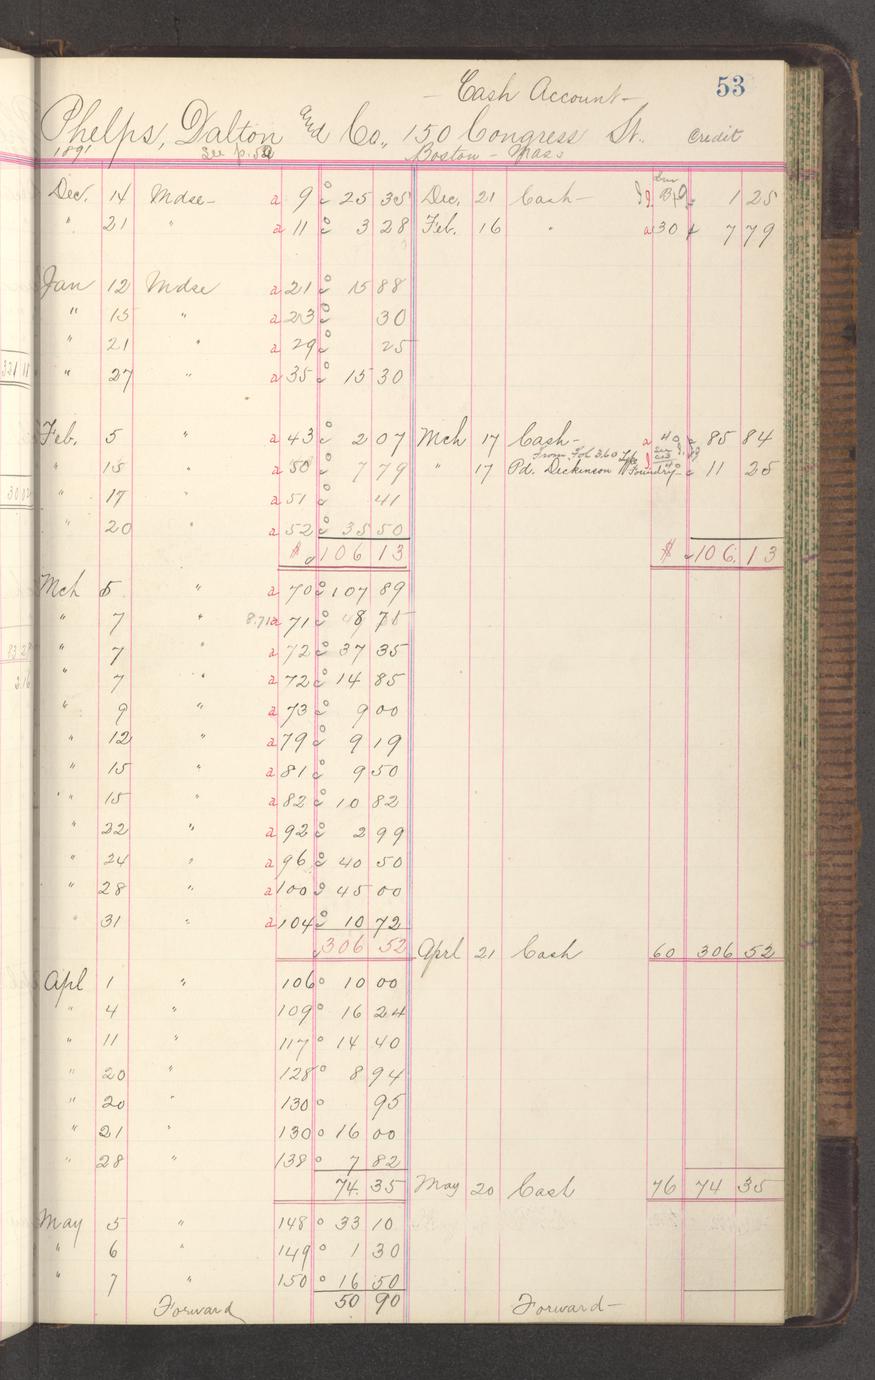 53
— Cash Account —
Phelps, Dalton and Co., 150 Congress St. Credit
1891 See p. 52 Boston - Mass
Dec. 14 Mdse- a 9 25 35 Dec. 21 Cash- 1 25
" 21 " a 11 3 28 Feb. 16 " a 30 7 79
Jan 12 Mdse a 21 15 88
" 15 " a 23 30
" 21 " a 29 25
321 11 " 27 " a 35 15 30
Feb. 5 " a 43 2 07 Mch 17 Cash- a 40 85 84
From Fol 360
" 15 " a 50 7 79 " 17 Pd. Dickinson Type Foundry- 40 11 25
" 17 " a 51 41
" 20 " a 52 35 50
$ 106 13 $ 106. 13
Mch 5 " a 70 107 89
" 7 " 8.71 a 71 48 75
" 7 " a 72 37 35
" 7 " a 72 14 85
" 9 " a 73 9 00
" 12 " a 79 9 19
" 15 " a 81 9 50
" 15 " a 82 10 82
" 22 " a 92 2 99
" 24 " a 96 40 50
" 28 " a 100 45 00
" 31 " a 104 10 72
306 52 Aprl 21 Cash 60 306 52
Apl 1 " 106 10 00
" 4 " 109 16 24
" 11 " 117 14 40
" 20 " 128 8 94
" 20 " 130 95
" 21 " 130 16 00
" 28 " 138 7 82
74. 35 May 20 Cash 76 74 35
May 5 " 148 33 10
" 6 " 149 1 30
" 7 " 150 16 50
Forward 50 90 Forward-